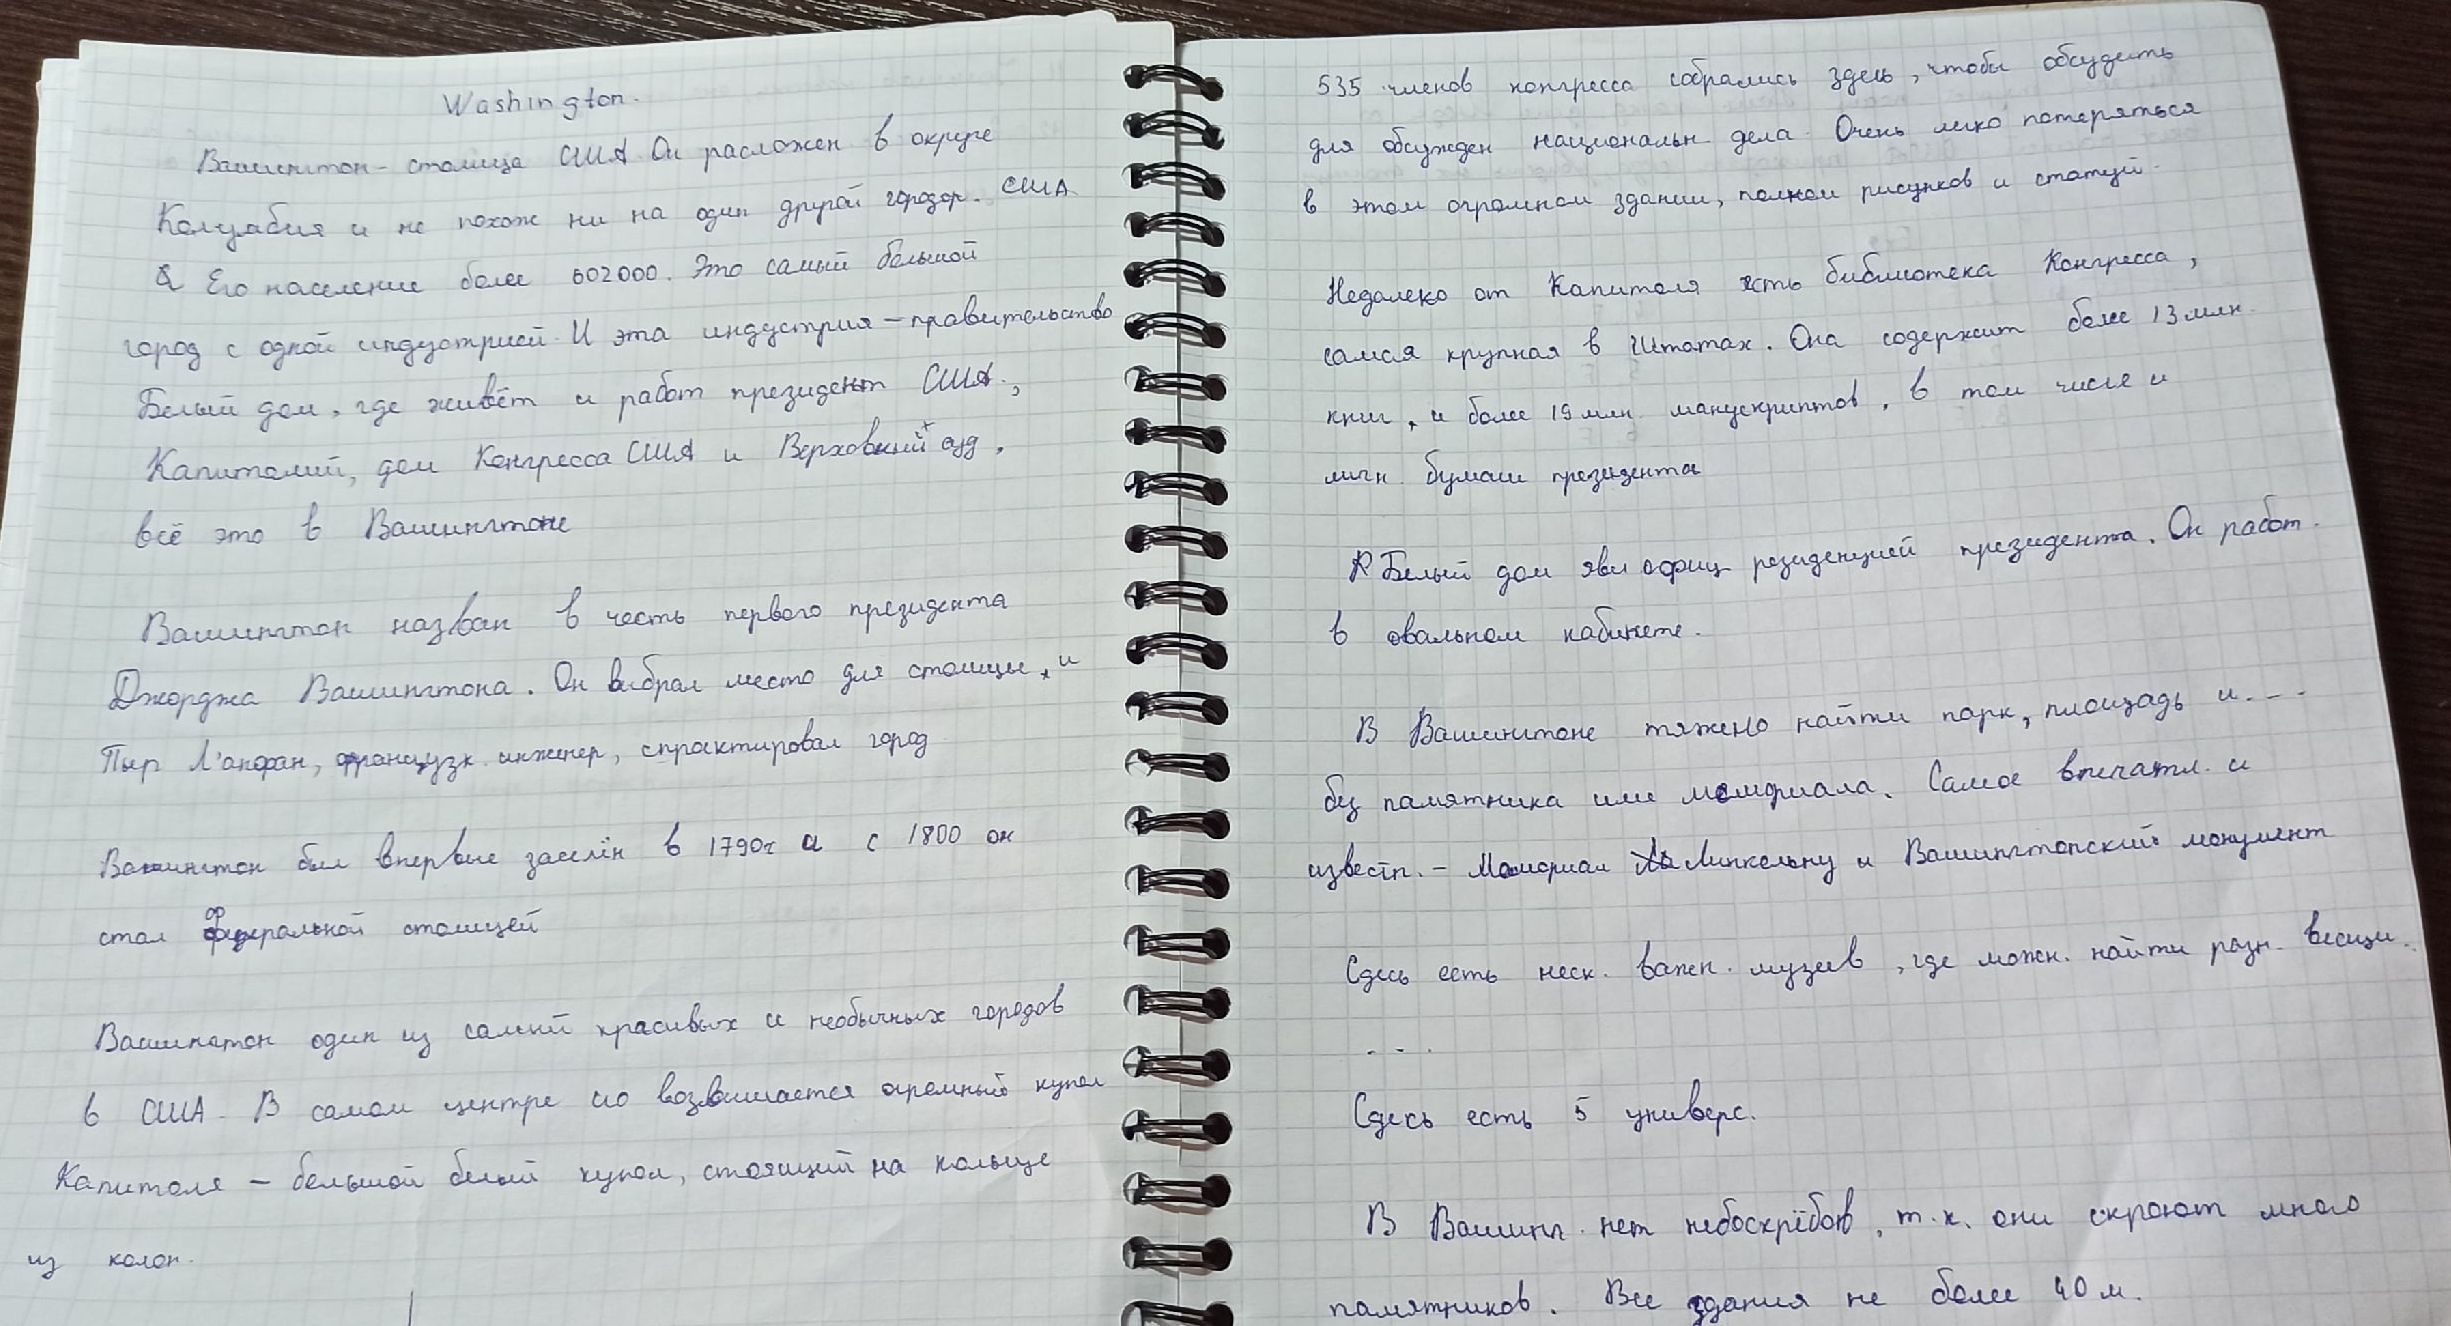 Washington.
Вашингтон - столица США. Он расложен в округе
Колумбия и не похож ни на один другой город. США
Его население более 602000. Это самый большой
город с одной индустрией. И эта индустрия - правительство
Белый дом, где живёт и работ президент США,
Капитолий, дом Конгресса США и Верховный суд,
всё это в Вашингтоне
Вашингтон назван в честь первого президента
Джорджа Вашингтона. Он выбрал место для столицы, и
Пьер Л'анфан, французк. инженер, спроктировал город
Вашингтон был впервые заселён в 1790г а с 1800 он
стал федеральной столицей
Вашингтон один из самый красивых и необычных городов
в США. В самом центре его возвышается огромный купол
Капитоля - большой белый купол, стоящий на кольце
из колон.
535 членов конгресса собрались здесь, чтобы обсудить
для обсужден национальн. дела. Очень легко потеряться
в этом огромном здании, полном рисунков и статуй.
Недалеко от Капитоля есть библиотека Конгресса,
самая крупная в Штатах. Она содержит более 13 млн.
книг, и более 19 млн. манускриптов, в том числе и
личн. бумаги президента
Белый дом явл офиц резиденцией президента. Он работ.
в овальном кабинете.
В Вашингтоне тяжело найти парк, площадь и...
без памятника или мемориала. Самое впечатл. и
известн. - Мемориал Линкольну и Вашингтонский монумент
Сдесь есть неск. важн. музеев, где можн. найти разн. вещи..
...
Сдесь есть 5 универс.
В Вашингт. нет небоскрёбов, т.к. они скроют много
памятников. Все здания не более 40 м.